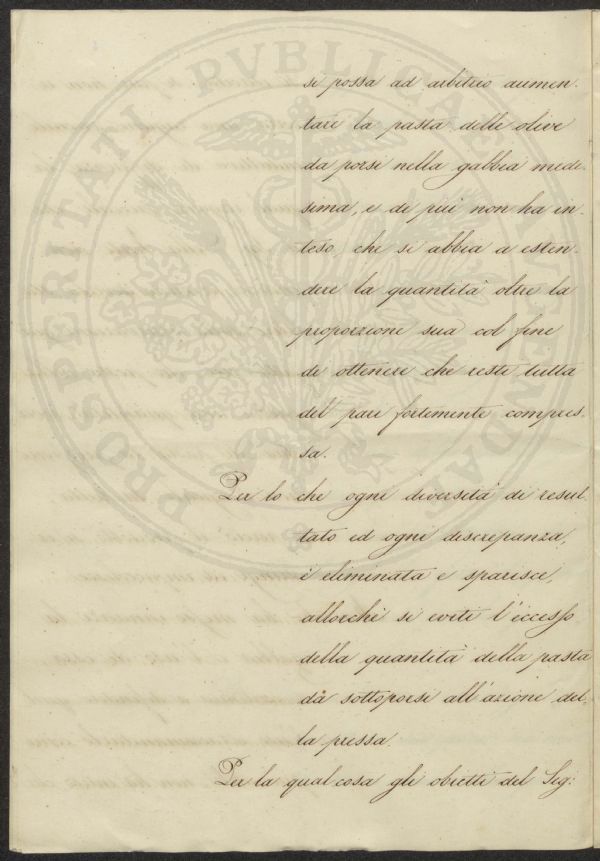 si possa ad arbitrio aumen-
tare la pasta delle olive
da porsi nella gabbia mede-
sima, e di più non ha in-
teso, che si abbia a esten-
dere la quantità oltre la
proporzione sua col fine
di ottenere che resti tutta
del pari fortemente compres-
sa.
Per lo che ogni diversità di resul-
tato ed ogni discrepanza,
è eliminata e sparisce,
allorchè si eviti l'eccesso
della quantità della pasta
da sottoporsi all'azione del-
la pressa.
Per la qual cosa gli obietti del Sig:
PROSPERITATI PVBLICAE AVGENDAE